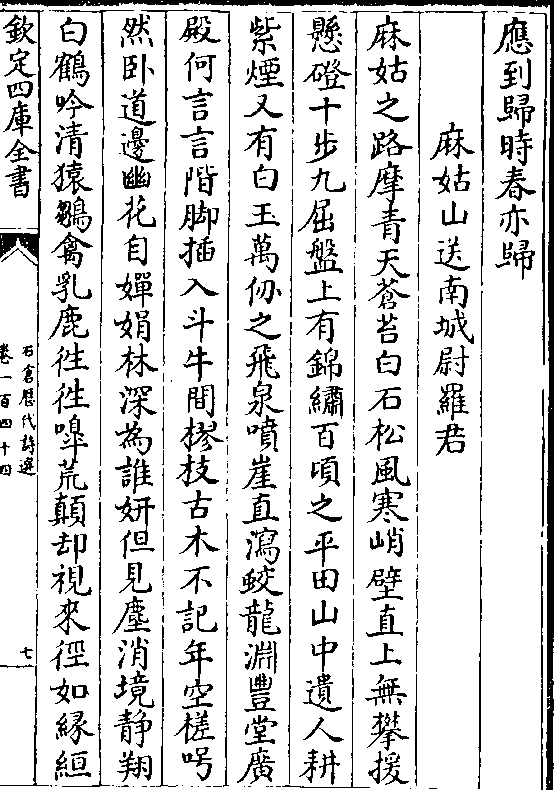 應到歸時春亦歸
麻姑山送南城尉羅君
麻姑之路摩青天蒼苔白石松風寒峭壁直上無攀援
懸磴十步九屈盤上有錦繡百頃之平田山中遺人耕
紫煙又有白玉萬仞之飛泉噴崖直瀉蛟龍淵豐堂廣
殿何言言階脚插入斗牛間樛枝古木不記年空槎呺
然卧道邊幽花自嬋娟林深為誰妍但見塵消境静翔
白鶴吟清猿鷚禽乳鹿徃徃嘷荒顛却視來徑如縁絙
欽定四庫全書
石倉歷代詩選
卷一百四十四
七